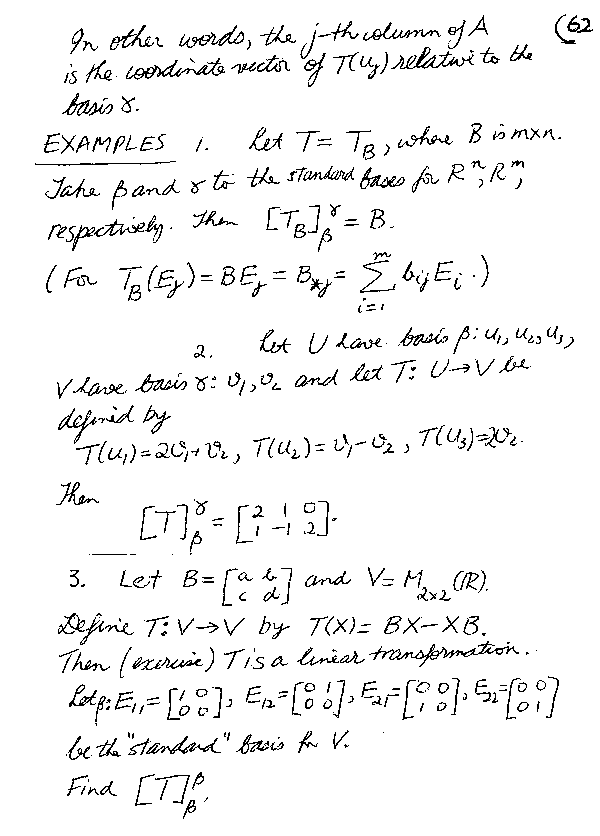 (62
In other words, the j-th column of A
is the coordinate vector of T(u_j) relative to the
basis γ.
EXAMPLES 1. Let T = T_B, where B is m×n.
Take β and γ to the standard bases for R^n, R^m,
respectively. Then [T_B]_β^γ = B.
(For T_B(E_j) = BE_j = B_{*j} = \sum_{i=1}^{m} b_{ij} E_i.)
2. Let U have basis β: u_1, u_2, u_3,
V have basis γ: v_1, v_2 and let T: U→V be
defined by
T(u_1) = 2v_1 + v_2, T(u_2) = v_1 − v_2, T(u_3) = 2v_2.
Then
[T]_β^γ = [2 1 0; 1 −1 2].
3. Let B = [a b; c d] and V = M_{2×2}(ℝ).
Define T: V→V by T(X) = BX − XB.
Then (exercise) T is a linear transformation.
Let β: E_{11} = [1 0; 0 0], E_{12} = [0 1; 0 0], E_{21} = [0 0; 1 0], E_{22} = [0 0; 0 1]
be the "standard" basis for V.
Find [T]_β^β.